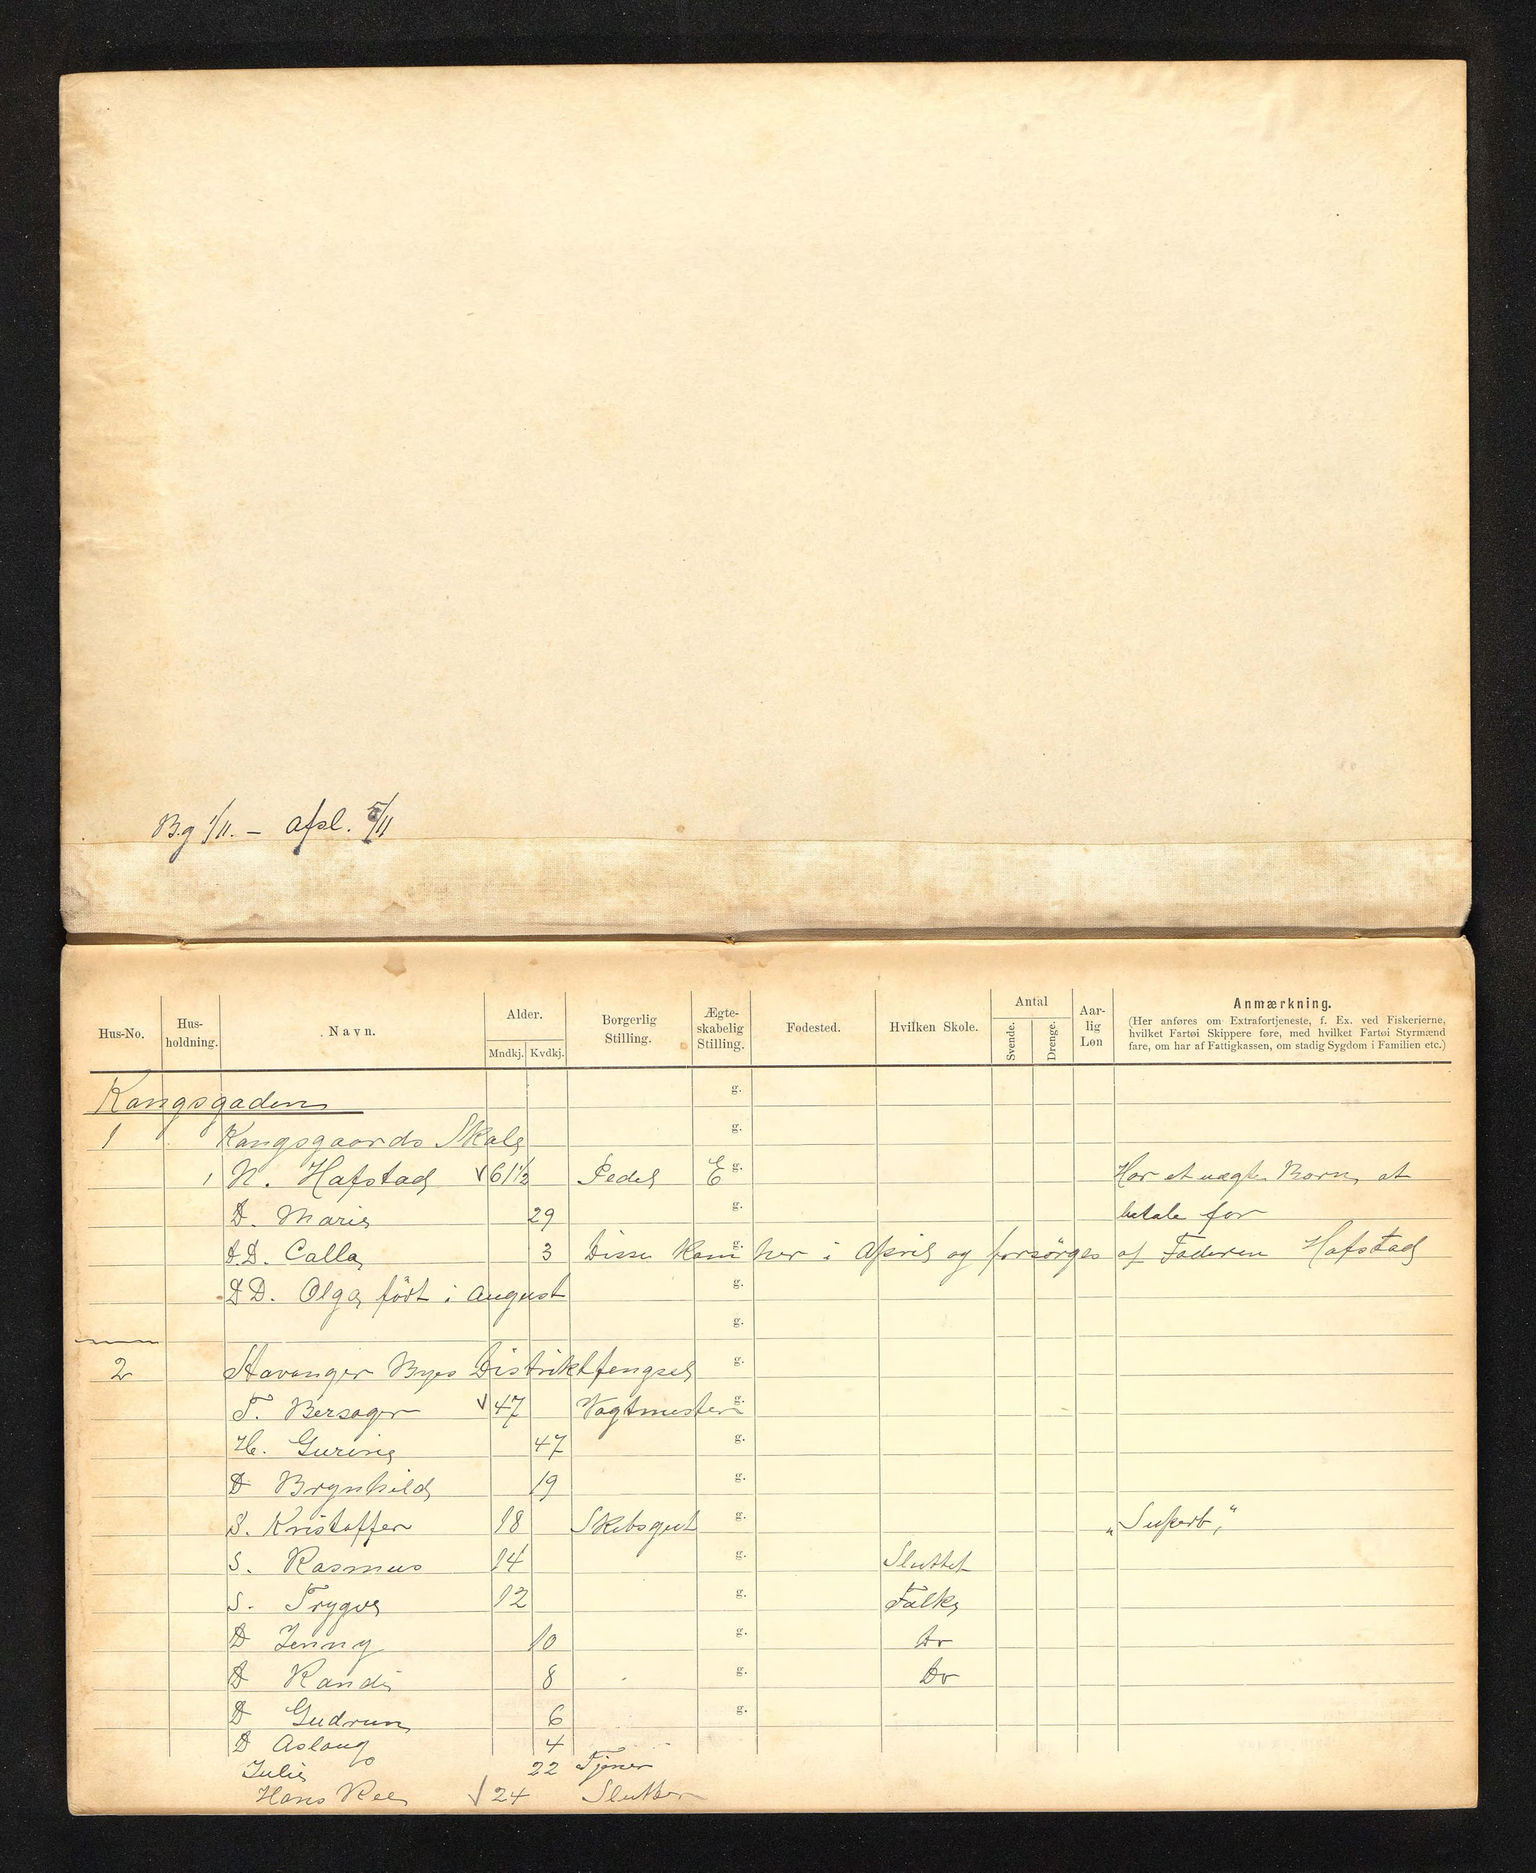 Bg 1/11. – afsl. 5/11
Hus-No. Hus-holdning. Navn. Alder. Mndkj. Kvdkj. Borgerlig Stilling. Ægte-skabelig Stilling. Fødested. Hvilken Skole. Antal Svende. Drenge. Aar-lig Løn Anmærkning.
(Her anføres om Extrafortjeneste, f. Ex. ved Fiskerierne,
hvilket Fartøi Skippere føre, med hvilket Fartøi Styrmænd
fare, om har af Fattigkassen, om stadig Sygdom i Familien etc.)
Kongsgaden g.
1 Kongsgaards Skole g.
1 N. Hafstad √ 61½ Pedel E g. Har et uægte Barn at
D. Marie 29 g. betale for
D.D. Calla 3 Disse kom g. her i April og forsørges af Faderen Hafstad
D D. Olga født i August g.
g.
2 Stavanger Byes Distriktfengsel g.
T. Bersager √ 47 Vagtmester g.
H. Gurine 47 g.
D Brynhild 19 g.
S. Kristoffer 18 Skibsgut g. „Superb,"
S. Rasmus 14 g. Sluttet
S. Trygve 12 g. Folks
D Jenny 10 g. Do
D Randi 8 g. Do
D Gudrun 6 g.
D Aslaug 4
Julie 22 Tjener
Hans Ree √ 24 Slutter